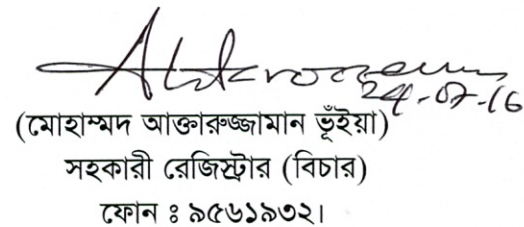 24-07-16
(মোহাম্মদ আক্তারুজ্জামান ভূঁইয়া)
সহকারী রেজিস্ট্রার (বিচার)
ফোন ঃ ৯৫৬১৯৩২।